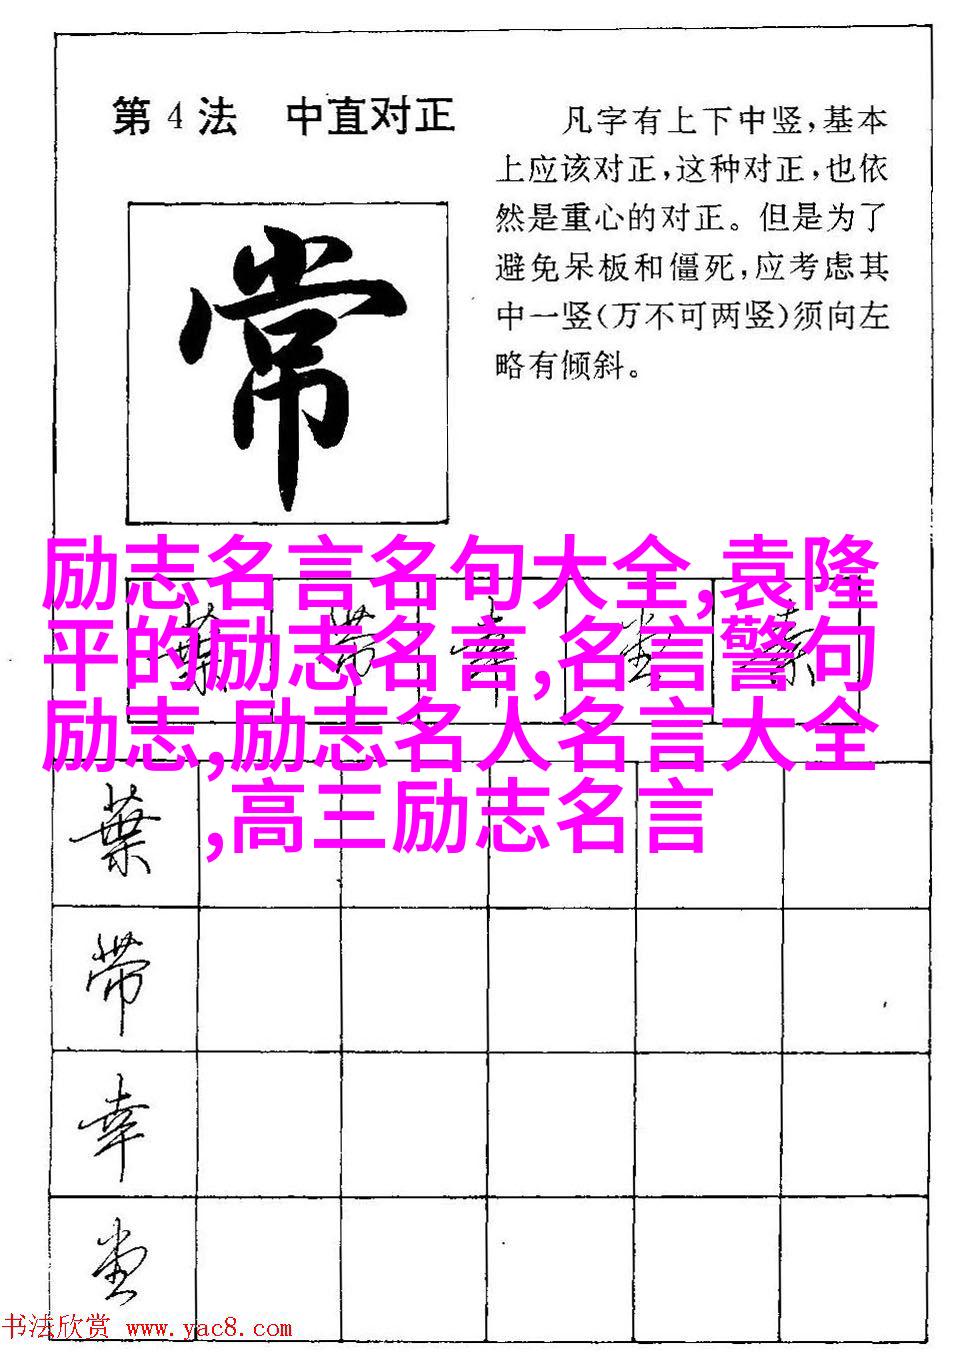 第4法 中直对正
凡字有上下中竖,基本
上应该对正,这种对正,也依
然是重心的对正。但是为了
避免呆板和僵死,应考虑其
中一竖(万不可两竖)须向左
略有倾斜。
常
励志名言名句大全,袁隆
平的励志名言,名言警句
励志,励志名人名言大全
,高三励志名言
葉 带 幸 堂 素
葉
带
幸
堂
书法欣赏 www.yac8.com